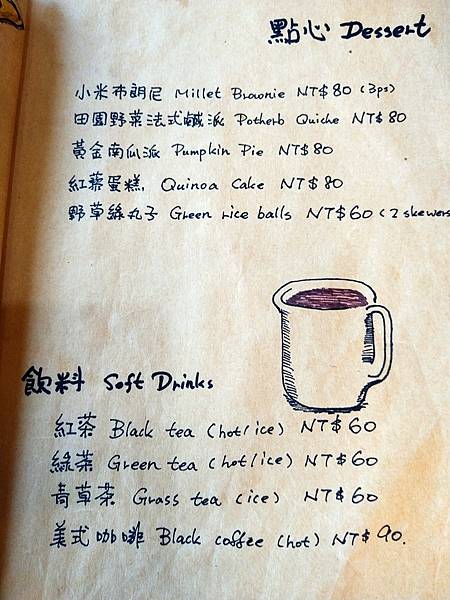 點心 Dessert
小米布朗尼 Millet Brownie NT$80 (3ps)
田園野菜法式鹹派 Potherb Quiche NT$80
黃金南瓜派 Pumpkin Pie NT$80
紅藜蛋糕, Quinoa Cake NT$80
野草絲丸子 Green rice balls NT$60 (2 skewers
飲料 Soft Drinks
紅茶 Black tea (hot/ice) NT$60
綠茶 Green tea (hot/ice) NT$60
青草茶 Grass tea (ice) NT$60
美式咖啡 Black coffee (hot) NT$90.